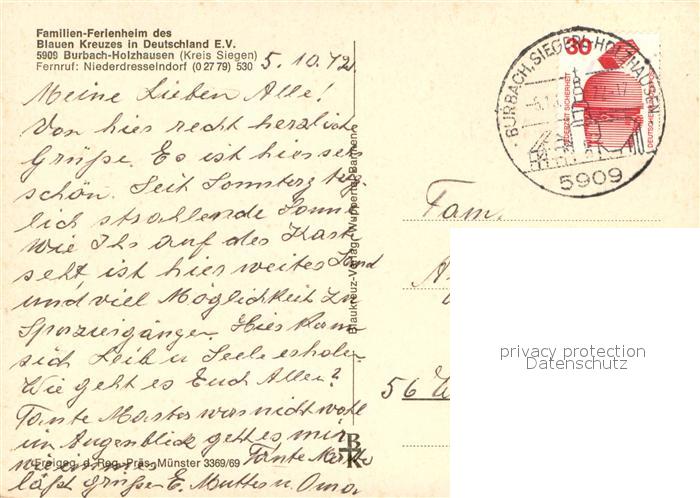 Familien-Ferienheim des
Blauen Kreuzes in Deutschland E.V.
5909 Burbach-Holzhausen (Kreis Siegen)
Fernruf: Niederdresselndorf (0 27 79) 530
5.10.72
Meine Lieben Alle!
Von hier recht herzliche
Grüße. Es ist hier sehr
schön. Seit Sonntag täg-
lich strahlende Sonne
Wie Ihr auf der Karte
seht, ist hier weites Land
und viel Möglichkeit zu
Spaziergänger. Hier kann
sich Leib u Seele erholen.
Wie geht es Euch Allen?
Tante war nicht wohl
im Augenblick geht es mir
wie
läßt grüßen E. Mutter u. Oma
Tante
Freigeg. d. Reg.-Präs. Münster 3369/69
Blaukreuz-Verlag, Wuppertal-Barmen
B
K
BURBACH, SIEGERL.-HOLZHAUSEN
5909
30
JEDERZEIT SICHERHEIT
DEUTSCHE BUNDESPOST
Fam.
56 W
privacy protection
Datenschutz